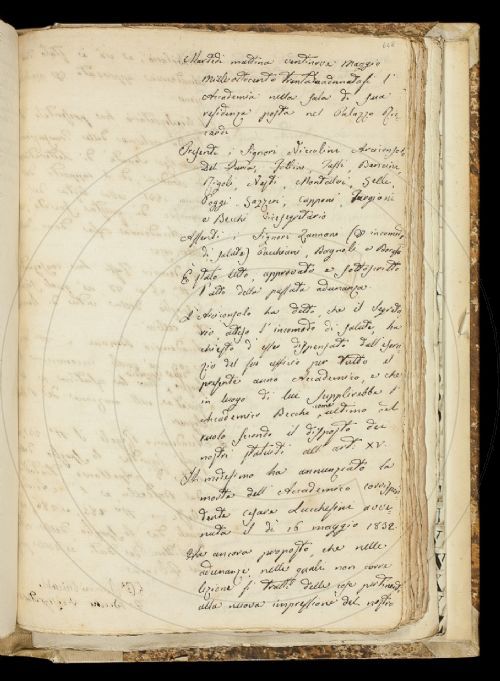 Martedì mattina ventinove Maggio
mille ottocento trenta adunatasi l'
Accademia nella sala di sua
residenza posta nel Palazzo Ric
cardi
Presenti i Signori Niccolini Arciconsolo
Del Furia, Follini, Tassi Bencini,
Rigoli, Nesti, Montalvi, Selli,
Poggi Gazzeri, Capponi, Targioni
e Becchi Vicesegretario
Assenti i Signori Zannoni (per incomodo
di salute) Bagnoli e Borghi
È stato letto, approvato e sottoscritto
l'atto della passata adunanza
L'Arciconsolo ha detto, che il Segreta
rio atteso l'incomodo di salute, ha
chiesto d'esser dispensato dall'eserci
zio del suo uffizio per tutto il
presente anno Accademico, e che
in luogo di lui supplirebbe l'
Accademico Becchi come ultimo nel
ruolo secondo il disposto dei
nostri statuti all'art. XV.
Il medesimo ha annunziato la
morte dell'Accademico corrispon
dente Cesare Lucchesini avve
nuta il dì 16 maggio 1832.
Ha ancora proposto, che nelle
adunanze, nelle quali non corre
lezione si tratti delle cose pertinenti
alla nuova impressione del nostro